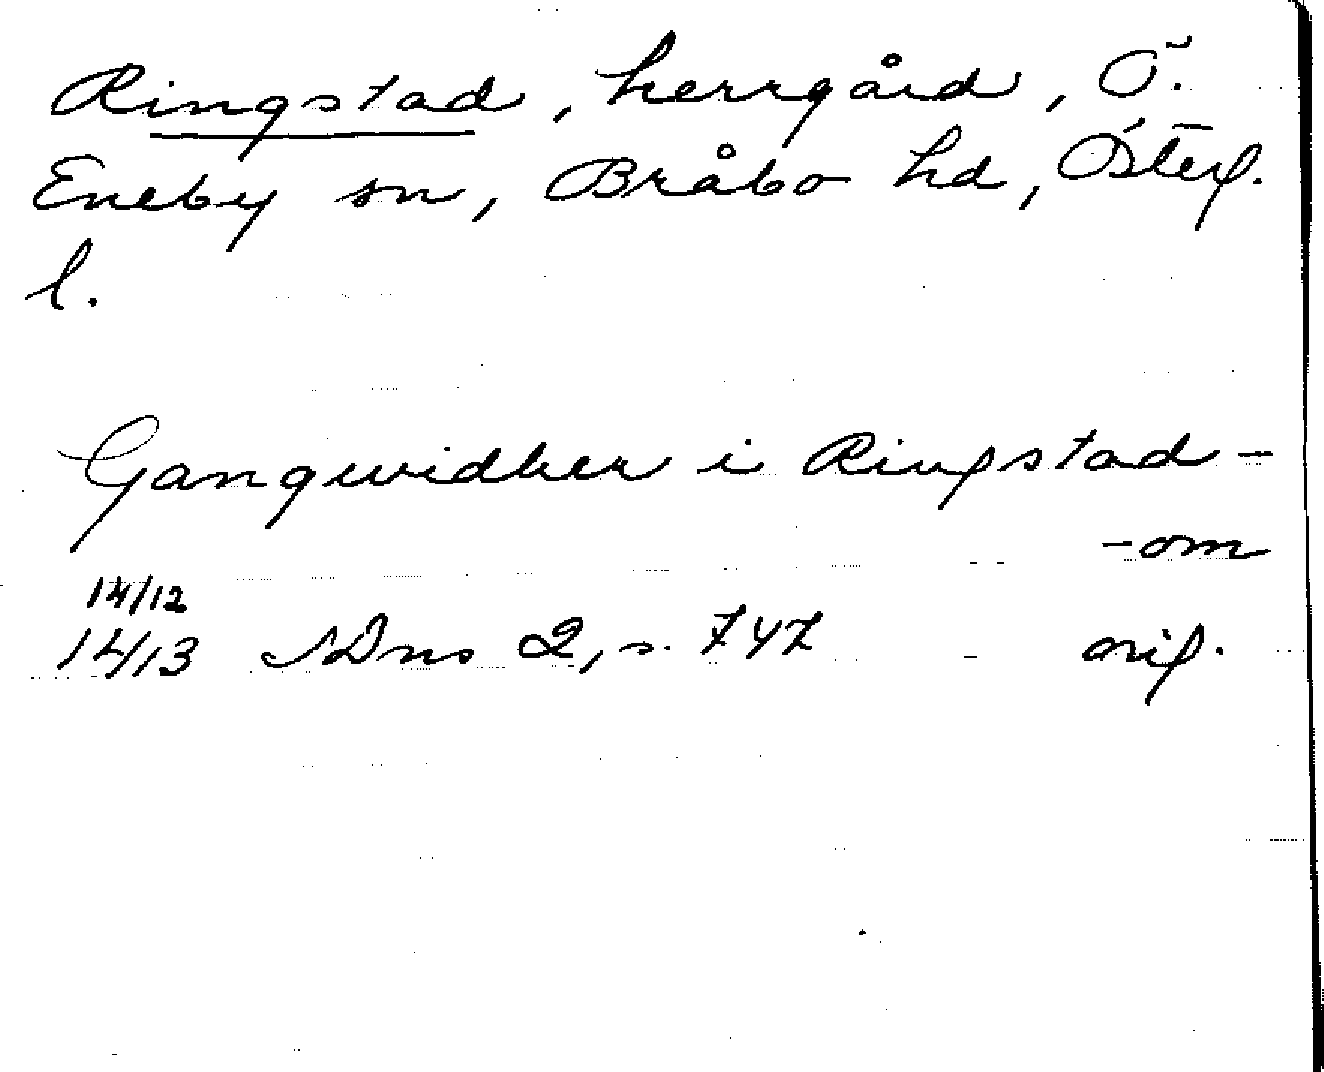 Ringstad, herrgård, Ö.
Eneby sn, Bråbo hd, Österg.
l.
Gangwidher i Ringstad-
-om
14/12
1413 SDns 2, s. 747 orig.